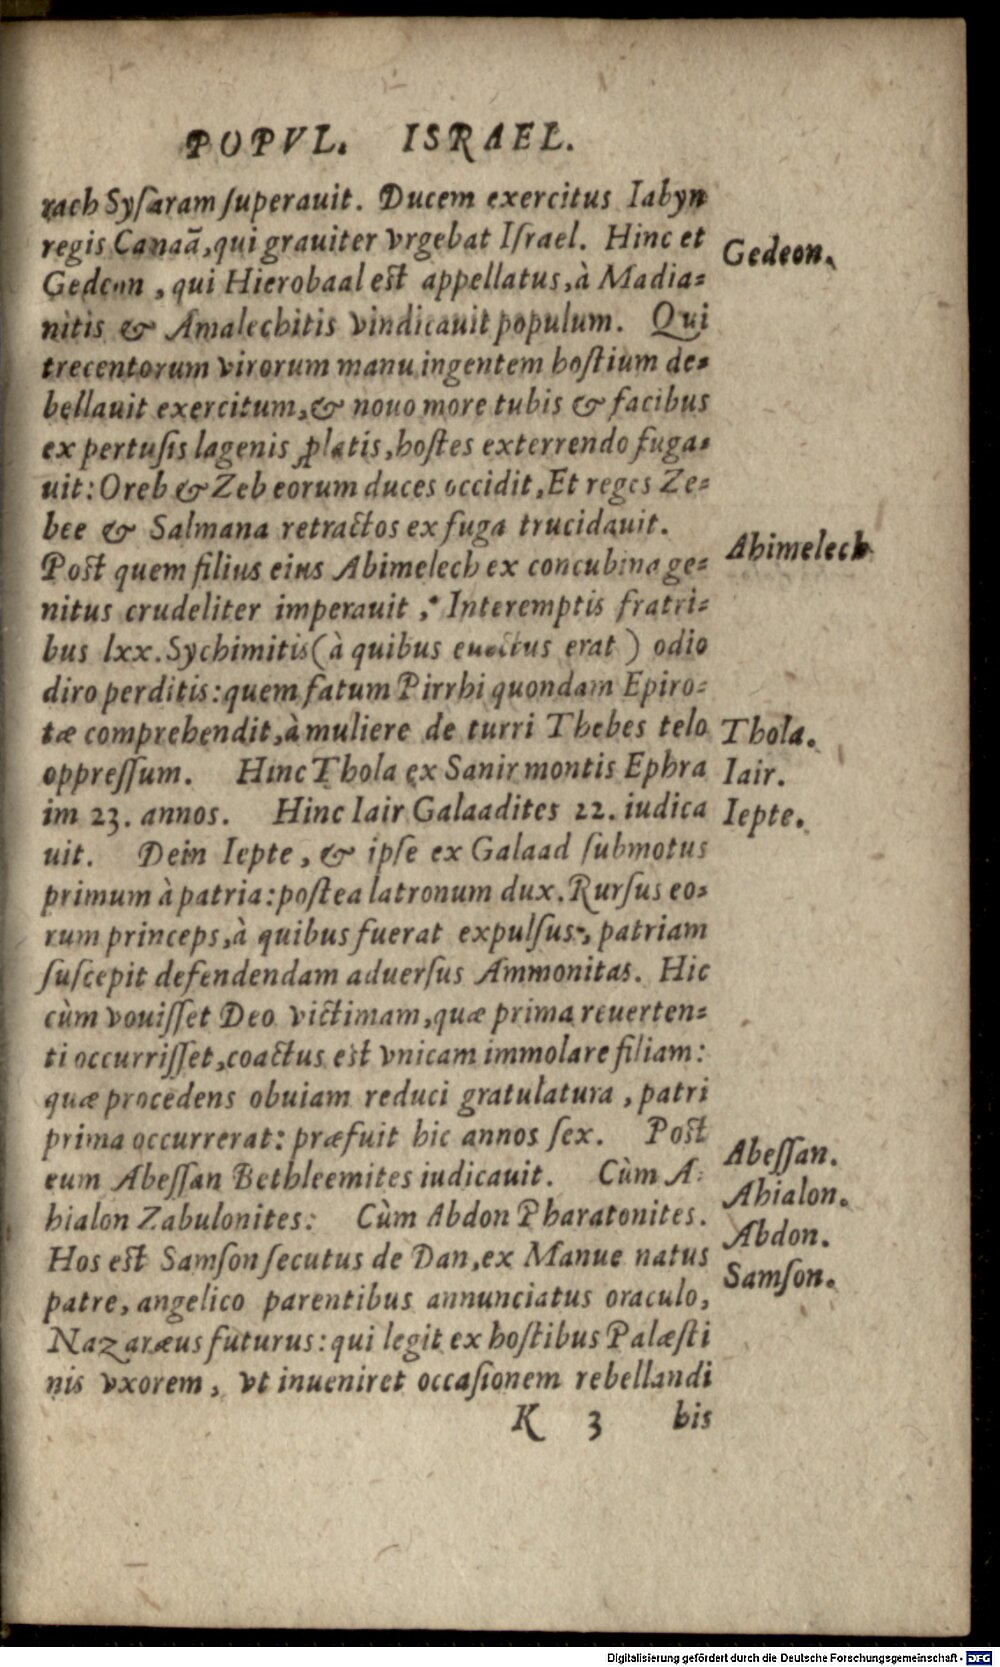 POPVL. ISRAEL.
rach Syſaram ſuperauit. Ducem exercitus Iabyn
regis Canaã, qui grauiter vrgebat Iſrael. Hinc et
Gedeon.
Gedeon, qui Hierobaal est appellatus, à Madia-
nitis & Amalechitis vindicauit populum. Qui
trecentorum virorum manu ingentem hoſtium de-
bellauit exercitum, & nouo more tubis & facibus
ex pertuſis lagenis ꝓlatis, hoſtes exterrendo fuga-
uit: Oreb & Zeb eorum duces occidit, Et reges Ze-
bee & Salmana retractos ex fuga trucidauit.
Abimelech
Post quem filius eius Abimelech ex concubina ge-
nitus crudeliter imperauit, Interemptis fratri-
bus lxx. Sychimitis (à quibus euectus erat) odio
diro perditis: quem fatum Pirrhi quondam Epiro-
tæ comprehendit, à muliere de turri Thebes telo
Thola.
oppreſſum. Hinc Thola ex Sanir montis Ephra
Iair.
im 23. annos. Hinc Iair Galaadites 22. iudica
Iepte.
uit. Dein Iepte, & ipſe ex Galaad ſubmotus
primum à patria: poſtea latronum dux. Rurſus eo-
rum princeps, à quibus fuerat expulſus, patriam
ſuſcepit defendendam aduerſus Ammonitas. Hic
cùm vouiſſet Deo victimam, quæ prima reuerten-
ti occurriſſet, coactus est vnicam immolare filiam:
quæ procedens obuiam reduci gratulatura, patri
prima occurrerat: præfuit hic annos ſex. Post
Abeſſan.
eum Abeſſan Bethleemites iudicauit. Cùm A-
Ahialon.
hialon Zabulonites: Cùm Abdon Pharatonites.
Abdon.
Hos est Samſon ſecutus de Dan, ex Manue natus
Samſon.
patre, angelico parentibus annunciatus oraculo,
Nazaræus futurus: qui legit ex hoſtibus Palæſti
nis vxorem, vt inueniret occaſionem rebellandi
K 3 bis
Digitalisierung gefördert durch die Deutsche Forschungsgemeinschaft - DFG